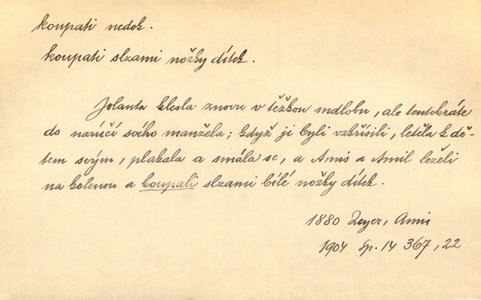 koupati nedok.
koupati slzami nožky dítek.
Jolanta klesla znovu v těžkou mdlobu, ale tentokráte
do náručí svého manžela; když ji byli vzkřísili, letěla k dě-
tem svým, plakala a smála se, a Amis a Amil leželi
na kolenou a koupali slzami bílé nožky dítek.
1880 Zeyer, Amis
1904 Sp. 14 367, 22